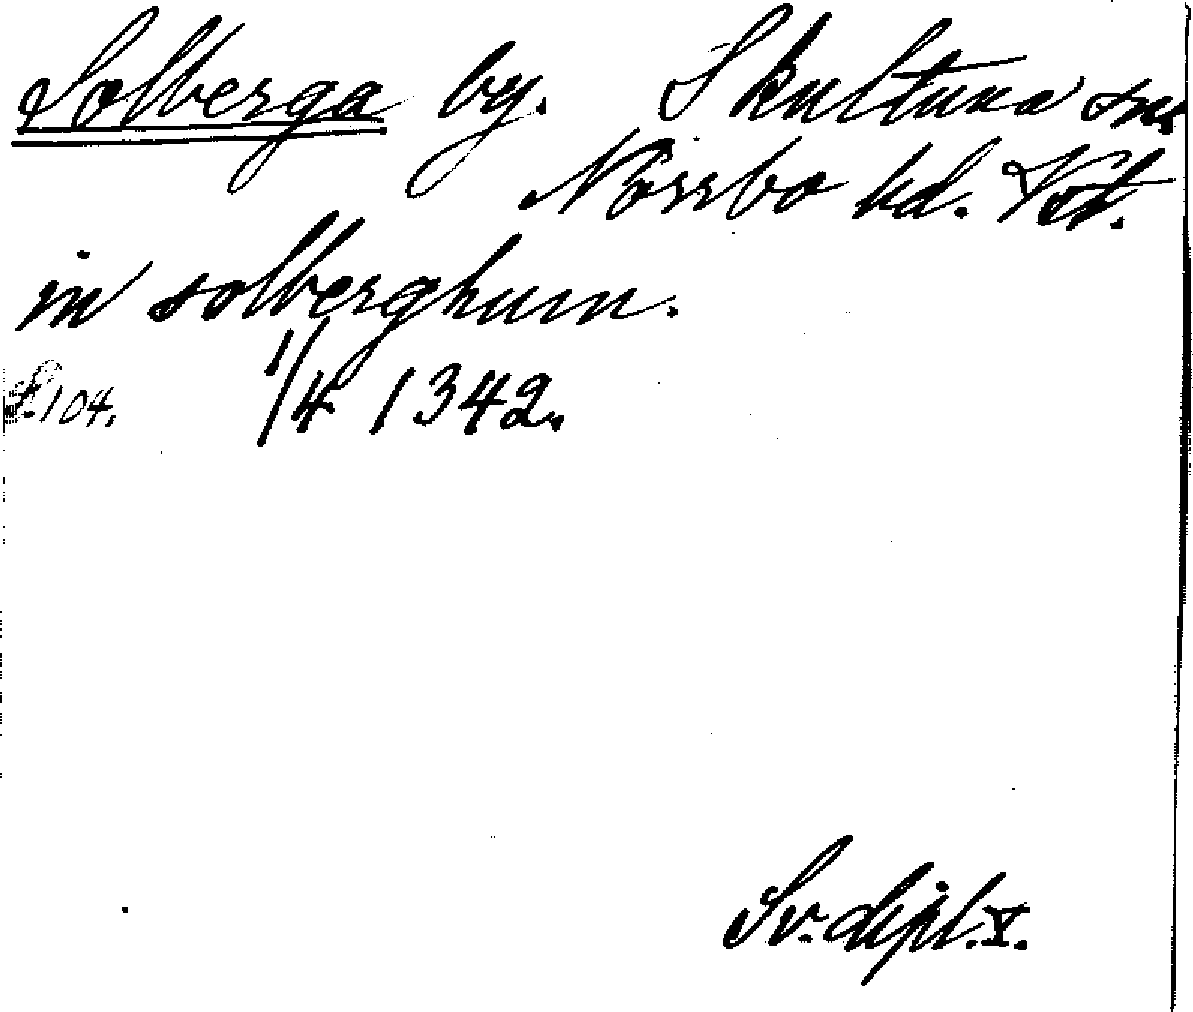 Solberga by. Skultuna sn
Norrbo hd. Vst.
in solberghum.
s. 104. 1/4 1342.
Sv. dipl. V.